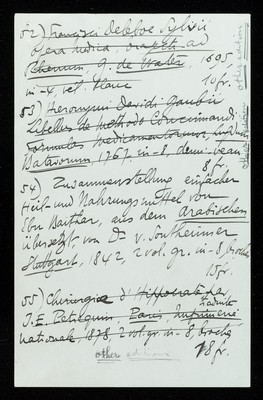 52) Francisci Deleboe Sylvii
Opera medica,
Rhenum, G. de Water, 1695,
in-4, vél. blanc
10 fr.
53) Hieronymi Davidi Gaubii
Libellus de methodo concinnandi
formulas medicamentorum, Lugduni
Batavorum, 1767, in-8, demi-veau
8 fr.
54) Zusammenstellung einfacher
Heil- und Nahrungsmittel von
Ebn Baithar, aus dem Arabischen
übersetzt von Dr v. Sontheimer
Stuttgart, 1842, 2 vol. gr. in-8, broché
15 fr.
55) Chirurgie d'Hippocrate par
J. E. Petrequin, Paris, Imprimerie
nationale, 1878, 2 vol. gr. in-8, broché
18 fr.
other editions
other editions